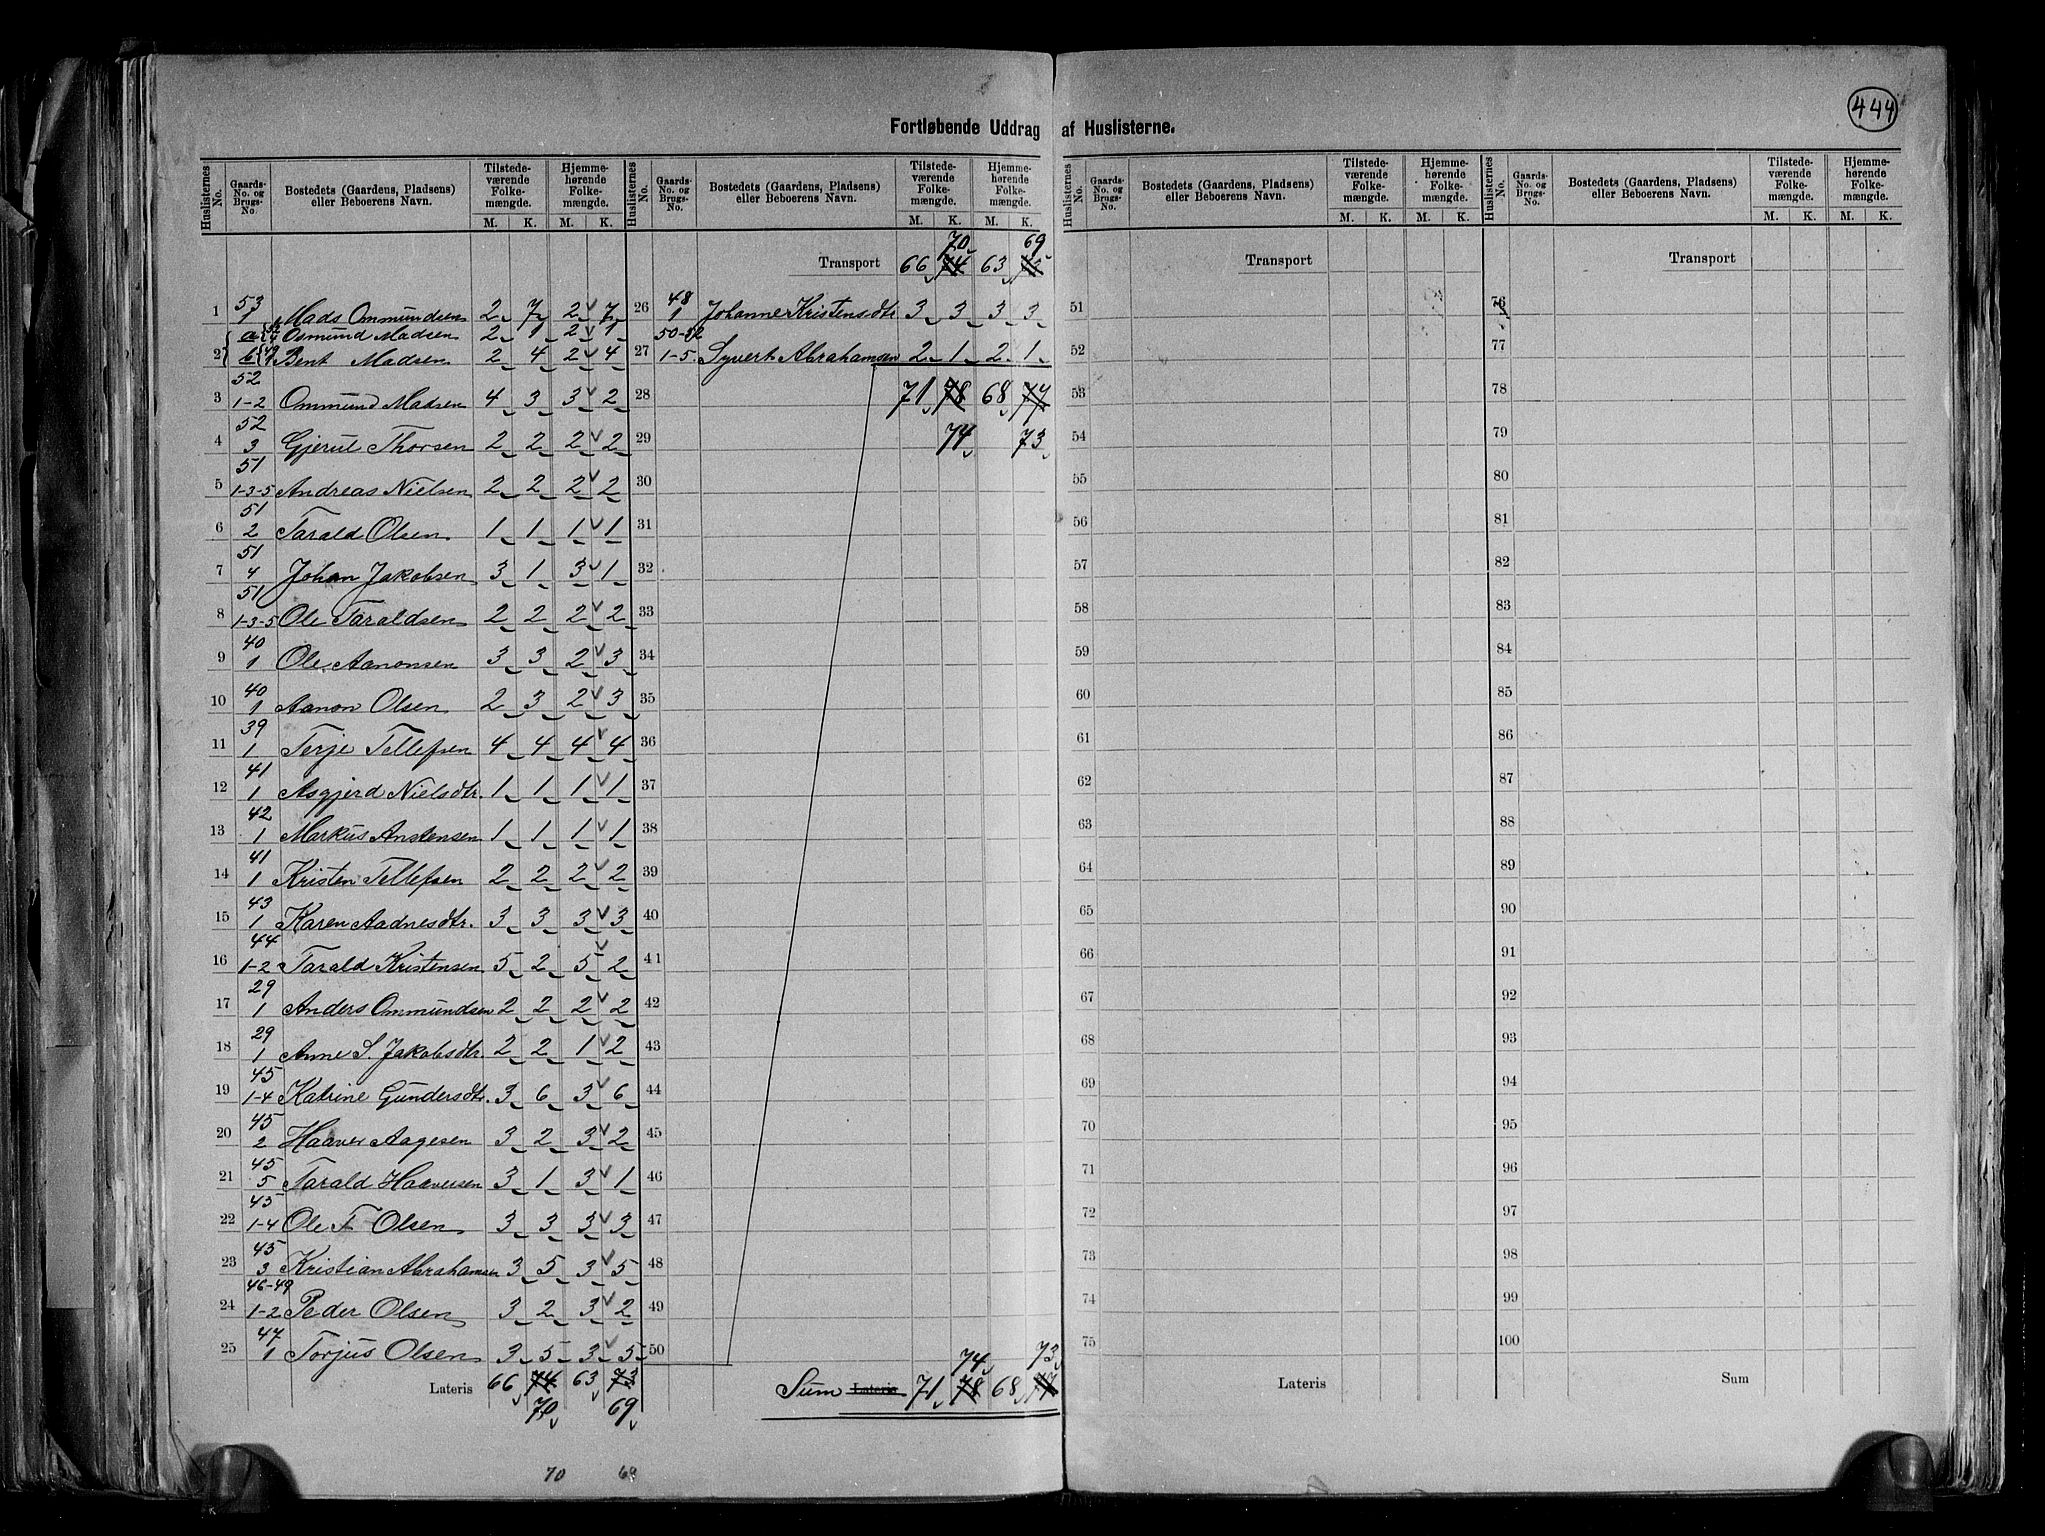 444
Fortløbende Uddrag af Huslisterne.
Huslisternes No. | Gaards-No. og Brugs-No. | Bostedets (Gaardens, Pladsens) eller Beboerens Navn. | Tilstedeværende Folkemængde. M. K. | Hjemmehørende Folkemængde. M. K.
1 | 53 1 | Mads Ommundsen | 2 | 7 | 2 | 7
2 a | Osmund Madsen | 2 | 1 | 2 | 1
b | Bent Madsen | 2 | 4 | 2 | 4
3 | 52 1-2 | Ommund Madsen | 4 | 3 | 3 | 2
4 | 52 3 | Gjerul Thorsen | 2 | 2 | 2 | 2
5 | 51 1-3-5 | Andreas Nielsen | 2 | 2 | 2 | 2
6 | 51 2 | Tarald Olsen | 1 | 1 | 1 | 1
7 | 51 4 | Johan Jakobsen | 3 | 1 | 3 | 1
8 | 51 1-3-5 | Ole Taraldsen | 2 | 2 | 2 | 2
9 | 40 1 | Ole Aanonsen | 3 | 3 | 2 | 3
10 | 40 1 | Aanon Olsen | 2 | 3 | 2 | 3
11 | 39 1 | Terje Tellefsen | 4 | 4 | 4 | 4
12 | 41 1 | Asgjerd Nielsdtr. | 1 | 1 | 1 | 1
13 | 42 1 | Markus Anstensen | 1 | 1 | 1 | 1
14 | 41 1 | Kristen Tellefsen | 2 | 2 | 2 | 2
15 | 43 1 | Karen Aadnesdtr. | 3 | 3 | 3 | 3
16 | 44 1-2 | Tarald Kristensen | 5 | 2 | 5 | 2
17 | 29 1 | Anders Ommundsen | 2 | 2 | 2 | 2
18 | 29 1 | Anne S. Jakobsdtr. | 2 | 2 | 1 | 2
19 | 45 1-4 | Katrine Gundersdtr. | 3 | 6 | 3 | 6
20 | 45 2 | Haaver Aagesen | 3 | 2 | 3 | 2
21 | 45 5 | Tarald Haaversen | 3 | 1 | 3 | 1
22 | 45 1-4 | Ole T Olsen | 3 | 3 | 3 | 3
23 | 45 3 | Kristian Abrahamsen | 3 | 5 | 3 | 5
24 | 46-49 1-2 | Peder Olsen | 3 | 2 | 3 | 2
25 | 47 1 | Torjus Olsen | 3 | 5 | 3 | 5
Lateris 66 74 63 73
70 69
70 69
Huslisternes No. | Gaards-No. og Brugs-No. | Bostedets (Gaardens, Pladsens) eller Beboerens Navn. | Tilstedeværende Folkemængde. M. K. | Hjemmehørende Folkemængde. M. K.
70 69
Transport 66 74 63 73
26 | 48 1 | Johanne Kristensdtr | 3 | 3 | 3 | 3
27 | 50-52 1-5. | Syvert Abrahamsen | 2 | 1 | 2 | 1
28 | 71 | 78 | 68 | 77
29 | 74 | 73
30
31
32
33
34
35
36
37
38
39
40
41
42
43
44
45
46
47
48
49
50
74 73
Sum Lateris 71 78 68 77
Huslisternes No. | Gaards-No. og Brugs-No. | Bostedets (Gaardens, Pladsens) eller Beboerens Navn. | Tilstedeværende Folkemængde. M. K. | Hjemmehørende Folkemængde. M. K.
Transport
51
52
53
54
55
56
57
58
59
60
61
62
63
64
65
66
67
68
69
70
71
72
73
74
75
Lateris
Huslisternes No. | Gaards-No. og Brugs-No. | Bostedets (Gaardens, Pladsens) eller Beboerens Navn. | Tilstedeværende Folkemængde. M. K. | Hjemmehørende Folkemængde. M. K.
Transport
76
77
78
79
80
81
82
83
84
85
86
87
88
89
90
91
92
93
94
95
96
97
98
99
100
Sum